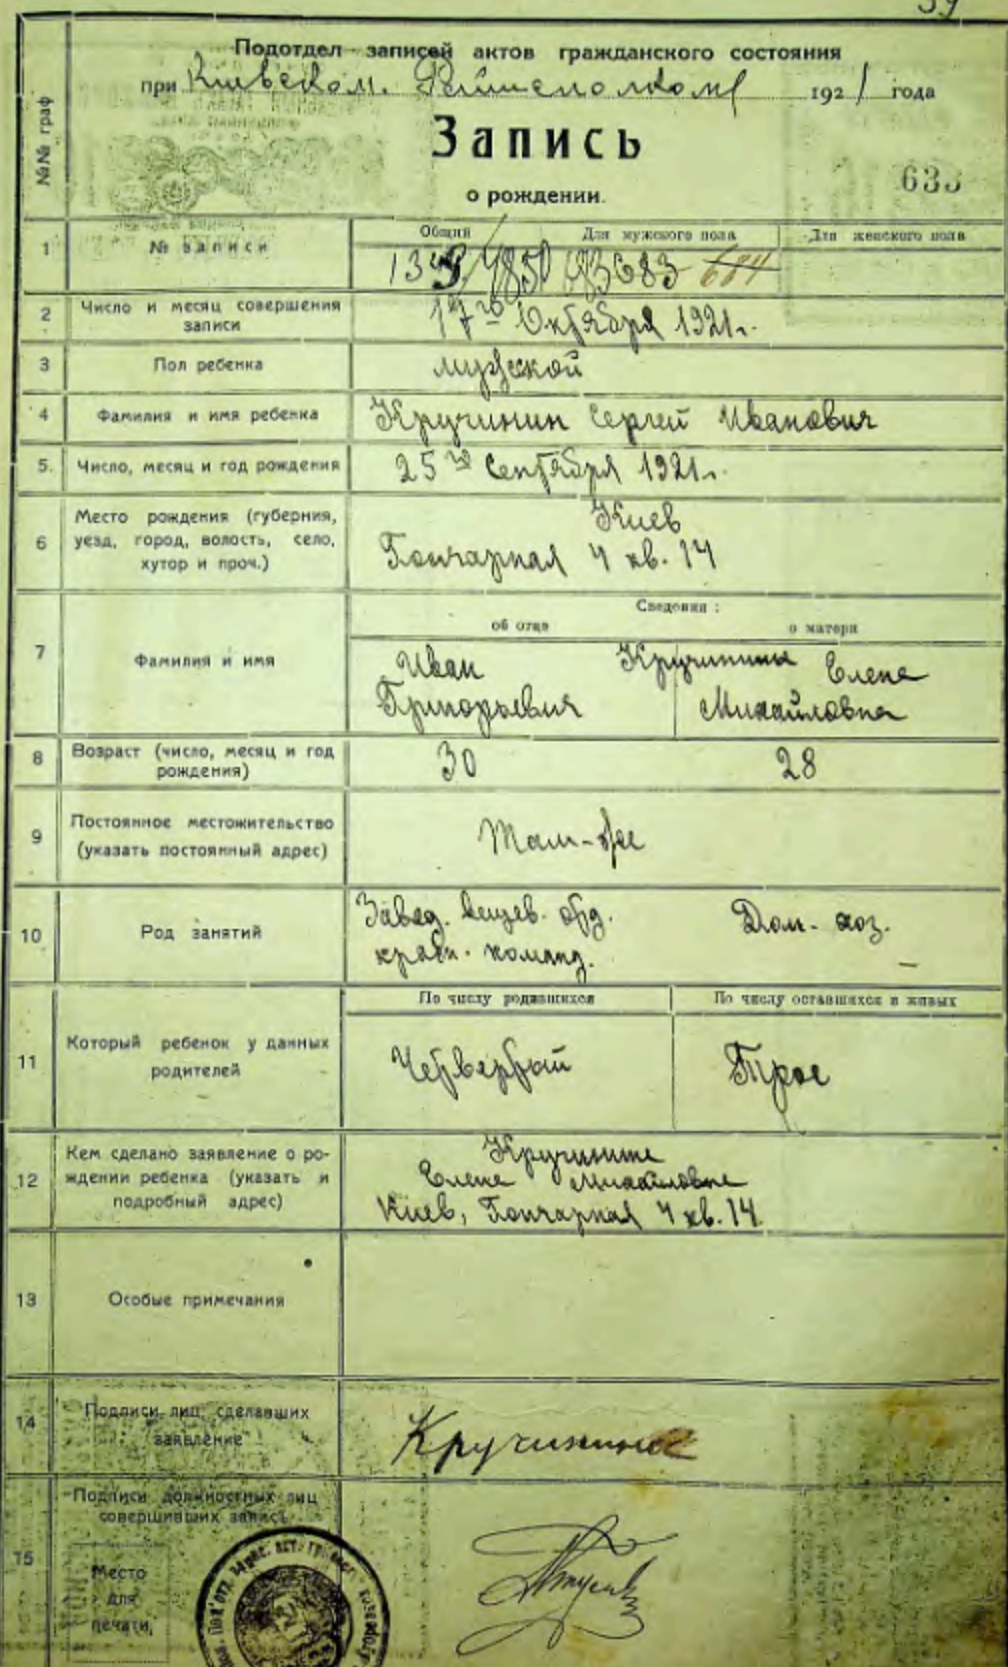 39
Подотдел записей актов гражданского состояния
при Киевском 1921 года
Запись
о рождении.
№№ граф
633
1 № записи
Общий Для мужского пола Для женского пола
684
2 Число и месяц совершения записи
17го Октября 1921г.
3 Пол ребенка мужской
4 Фамилия и имя ребенка Кручинин Сергей Иванович
5. Число, месяц и год рождения 25го Сентября 1921г.
6 Место рождения (губерния,
уезд, город, волость, село,
хутор и проч.)
Киев
Гончарная 4 кв. 14
7 Фамилия и имя
Сведения:
об отце о матери
Иван Кручинины Елена
Григорьевич Михайловна
8 Возраст (число, месяц и год
рождения)
30 28
9 Постоянное местожительство
(указать постоянный адрес)
Там-же
10 Род занятий
Завед. вещев. обд. Дом. хоз.
команд. —
11 Который ребенок у данных
родителей
По числу родившихся По числу оставшихся в живых
Четвертый Трое
12 Кем сделано заявление о ро-
ждении ребенка (указать и
подробный адрес)
Кручинина
Елена Михайловна
Киев, Гончарная 4 кв. 14
13 Особые примечания
14 Подписи лиц, сделавших
заявление
Кручинина
15 Подписи должностных лиц
совершивших запись
Место
для
печати,